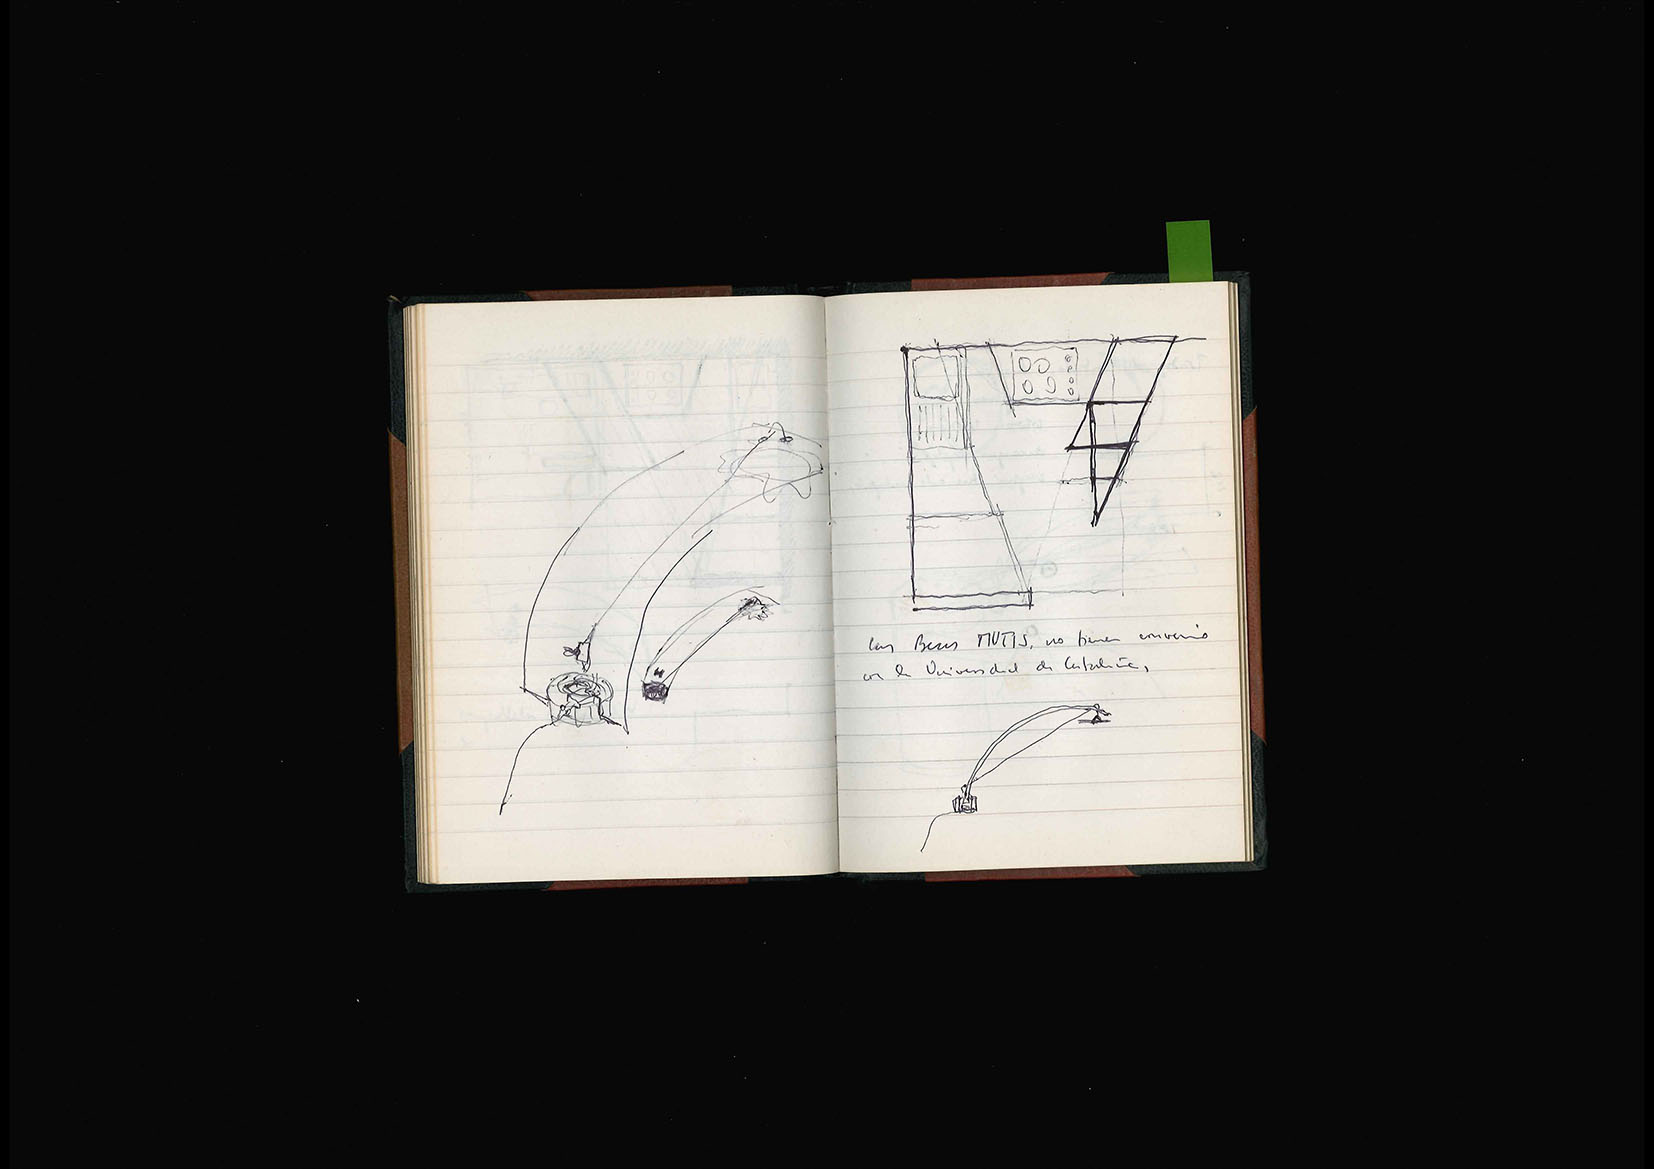 Las Becas MUTIS, no tienen convenio
con la Universidad de Cataluña,